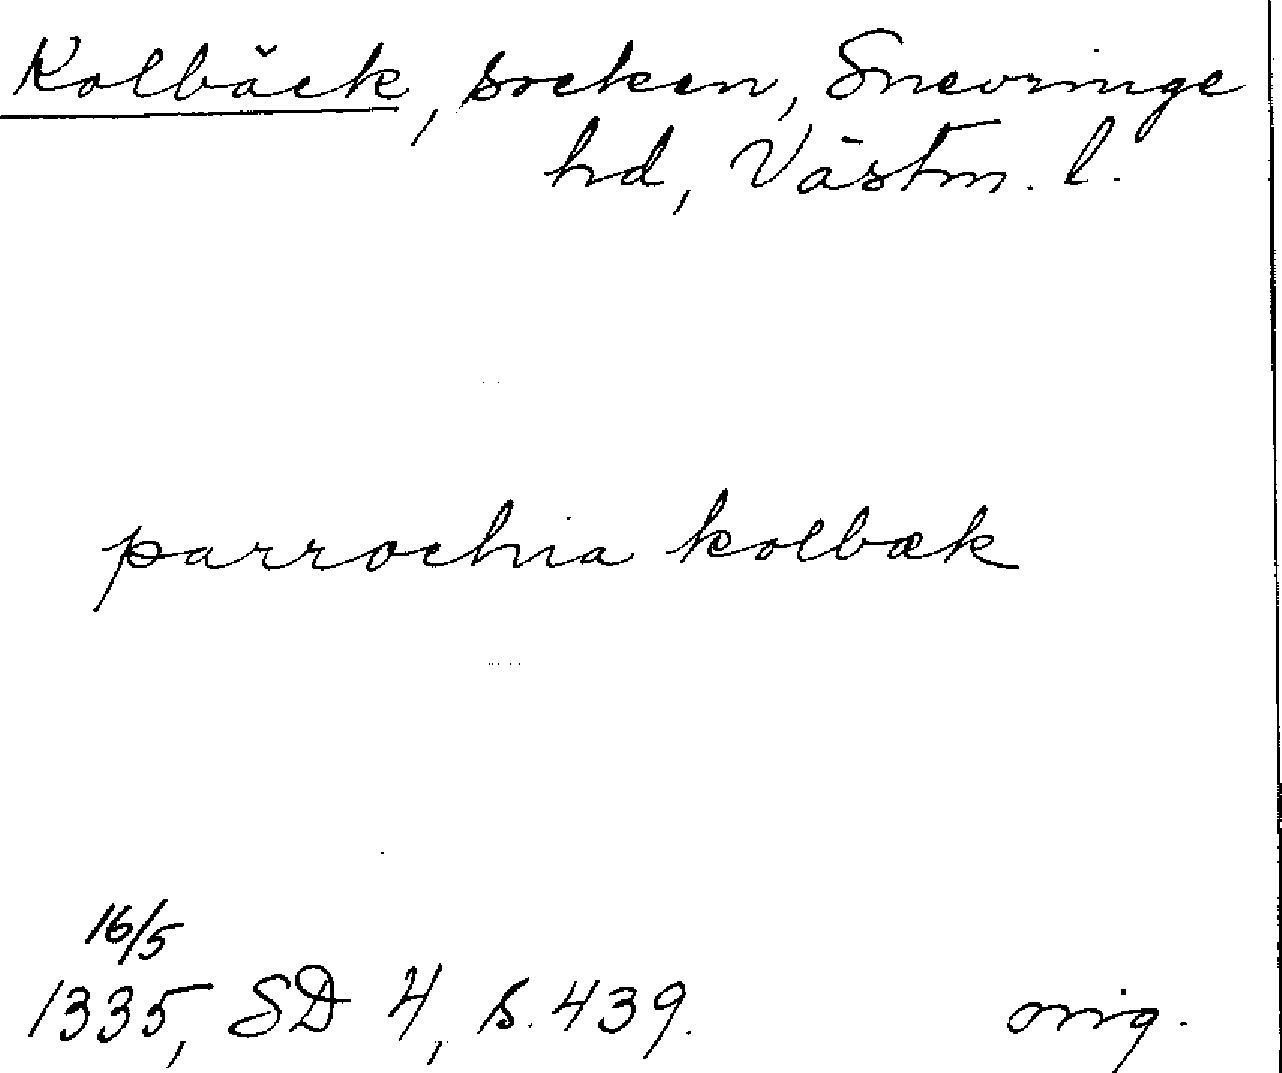 Kolbäck, socken, Snevringe
hd, Västm. l.
parrochia kolbæk
16/5
1335, SD 4, s. 439. orig.